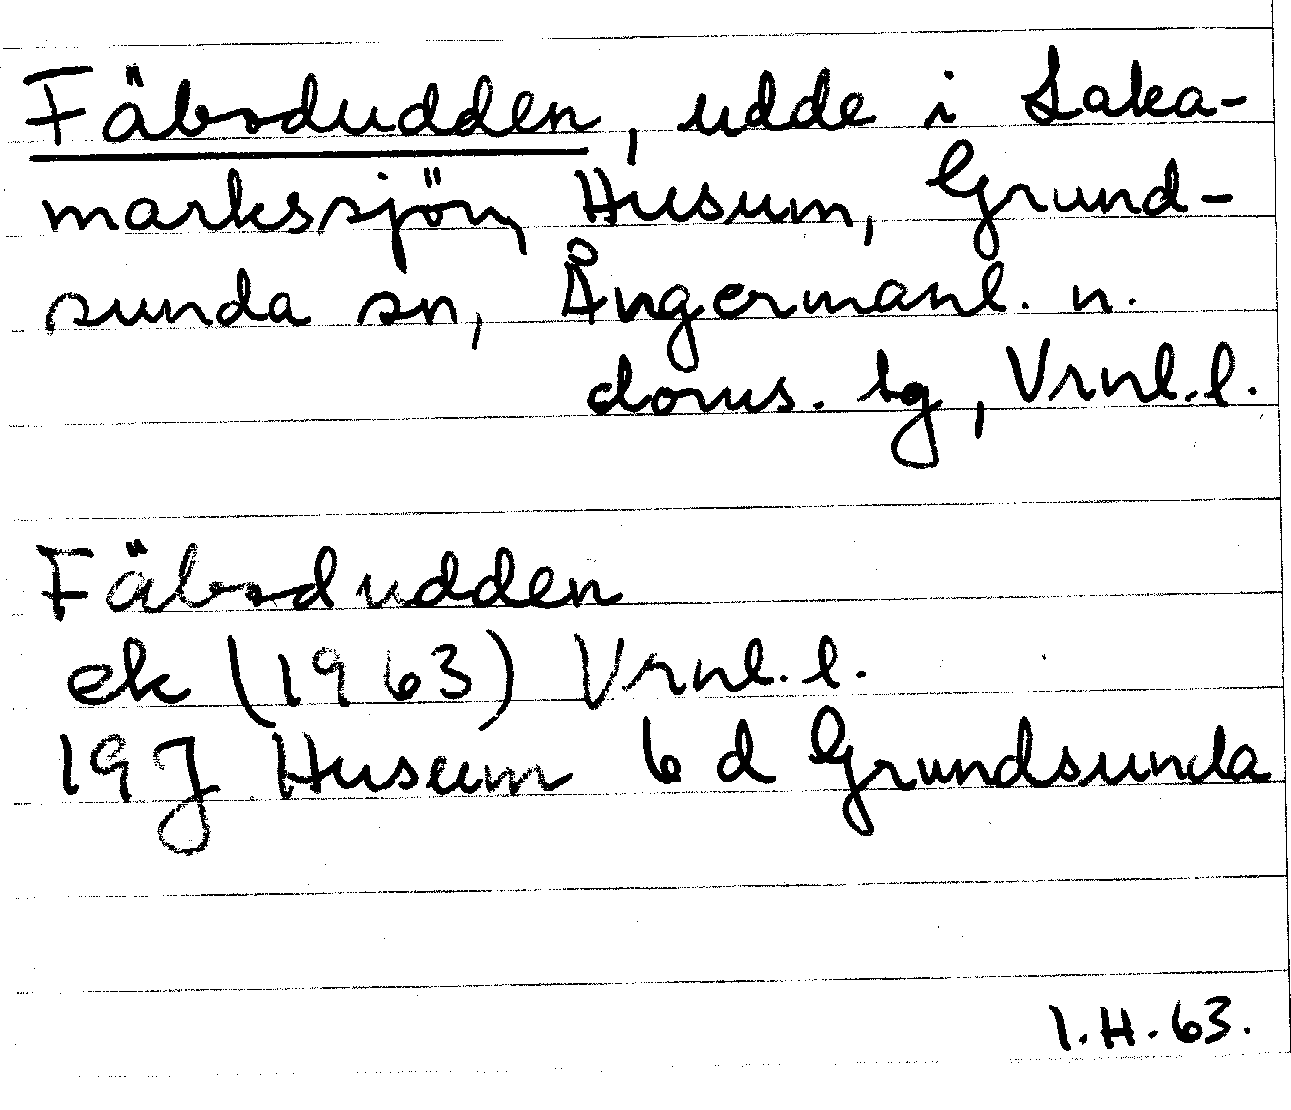 Fäbodudden, udde i Laka-
markssjön, Husum, Grund-
sunda sn, Ångermanl. n.
doms. tg, Vrnl. l.
Fäbodudden
ek (1963) Vrnl. l.
19J Husum 6 d Grundsunda
I.H. 63.